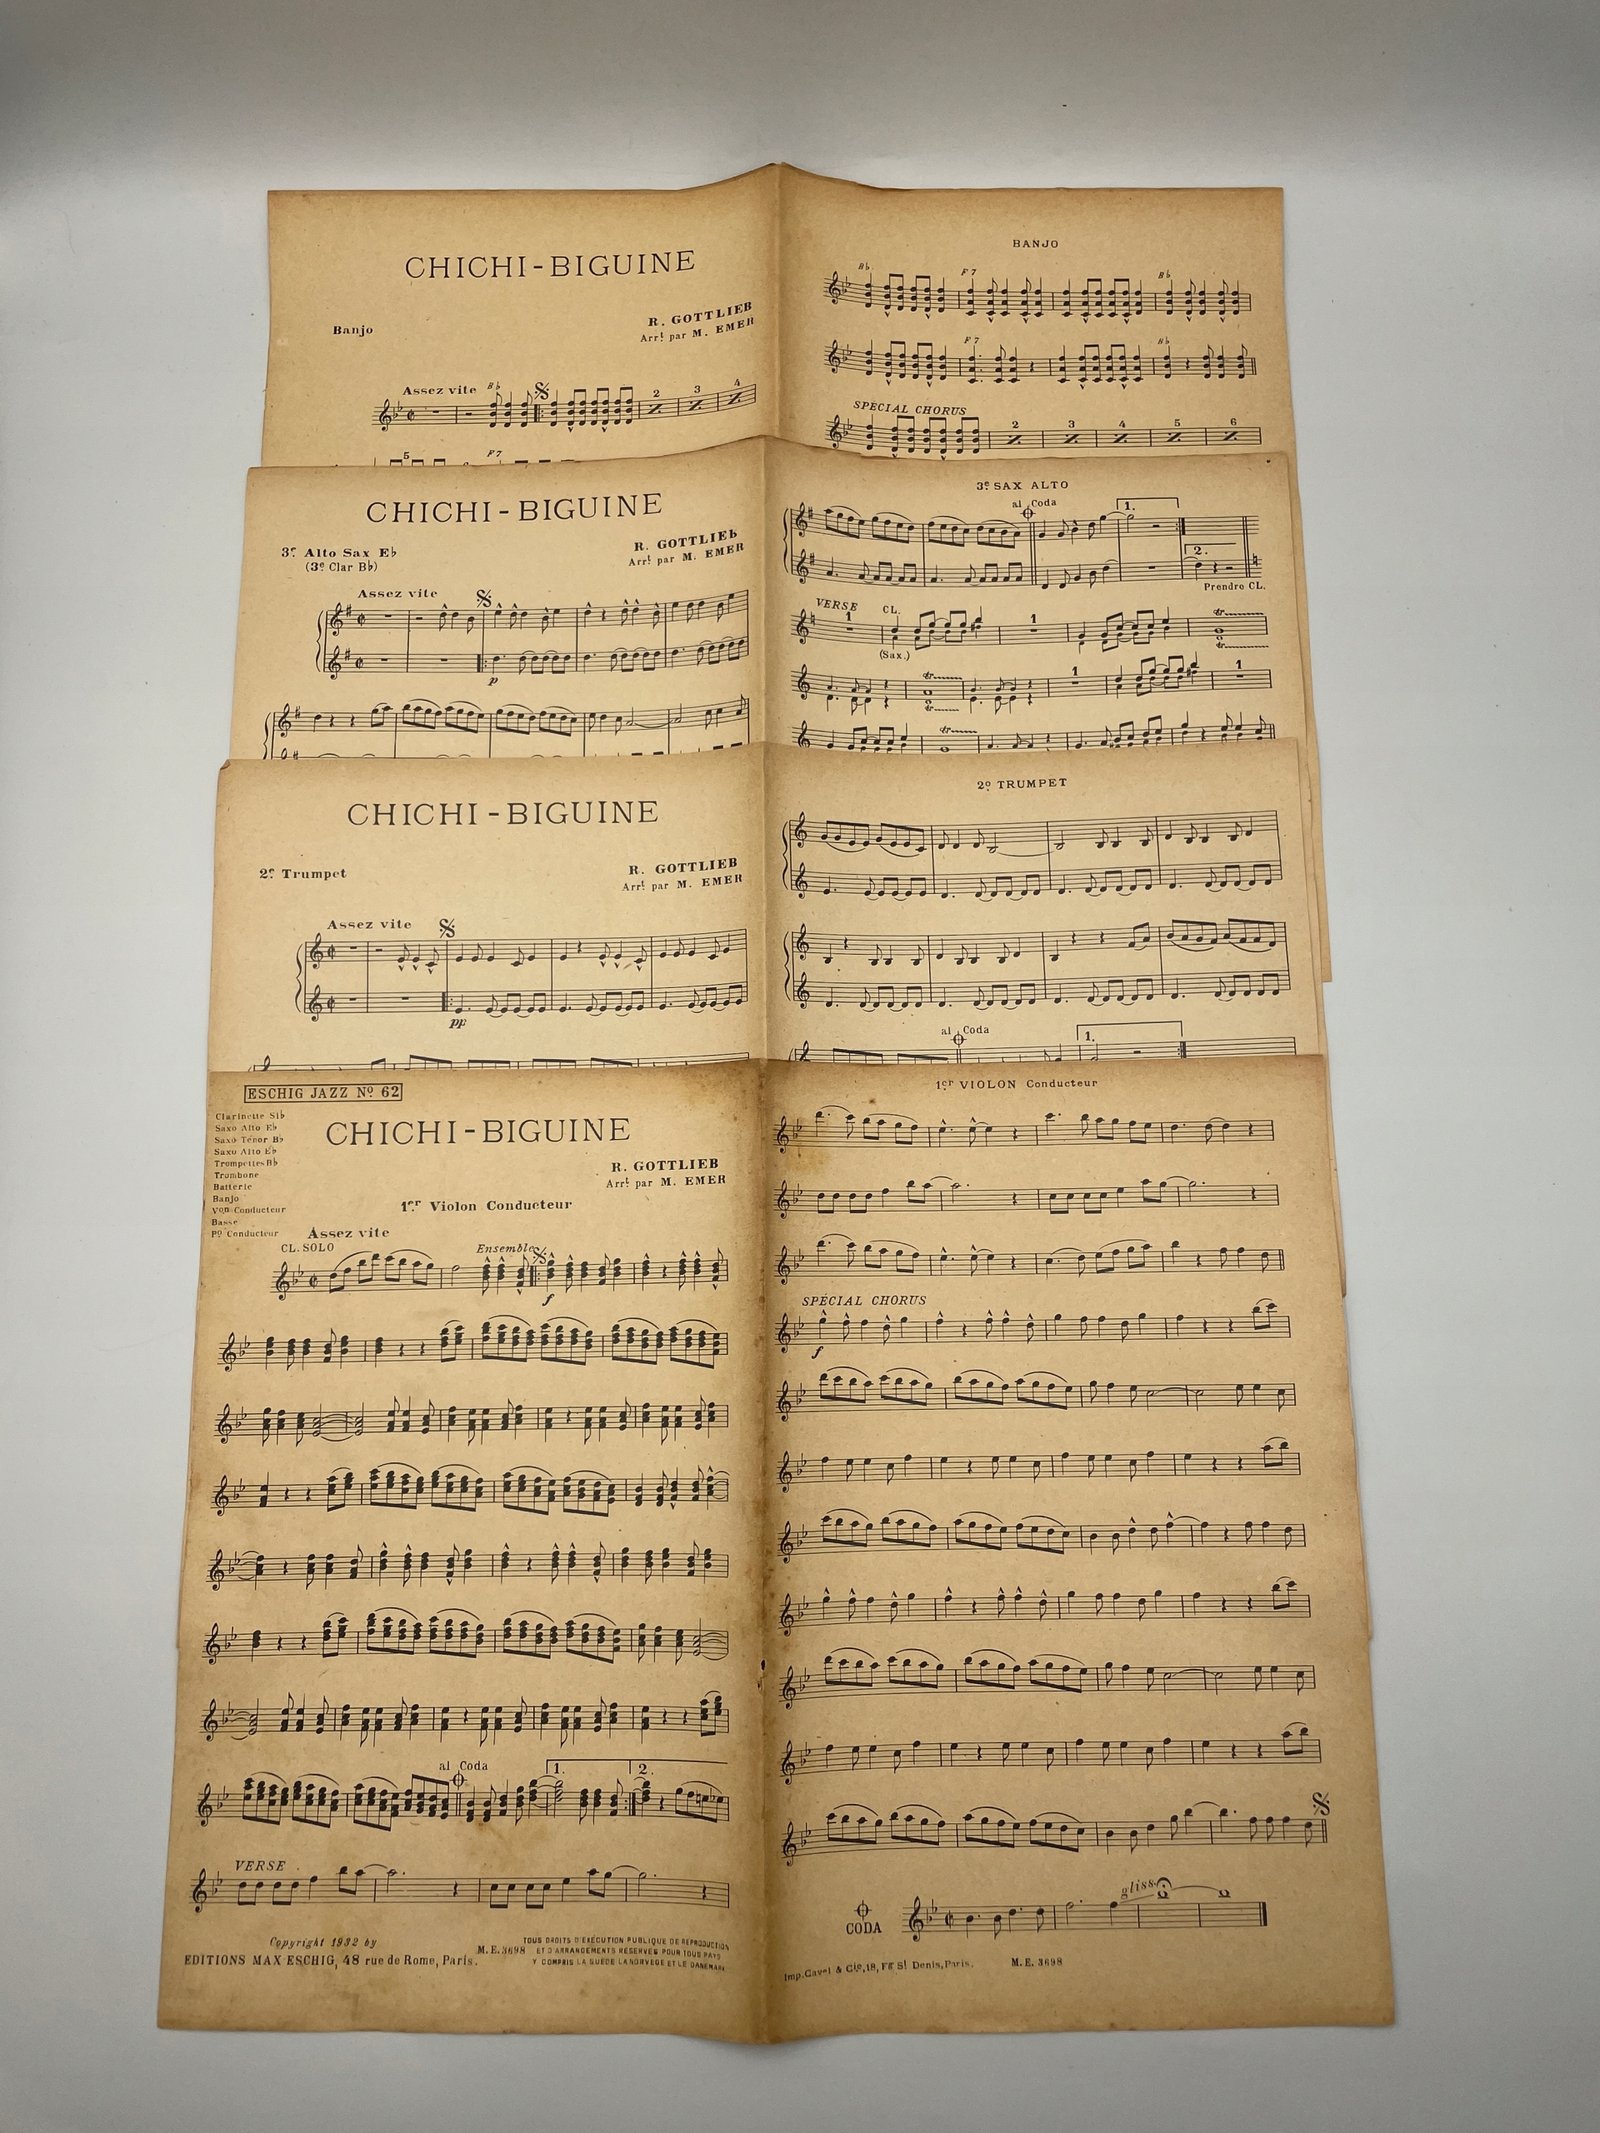 CHICHI-BIGUINE
Banjo
R. GOTTLIEB
Arrt par M. EMER
Assez vite
Bb
2
3
4
5
F7
BANJO
Bb
F7
Bb
F7
Bb
SPECIAL CHORUS
2
3
4
5
6
CHICHI-BIGUINE
3e Alto Sax Eb
(3e Clar Bb)
R. GOTTLIEB
Arrt par M. EMER
Assez vite
p
3e SAX ALTO
al Coda
1.
2.
Prendre CL.
VERSE
1
CL.
1
tr
(Sax.)
tr
tr
tr
1
1
tr
tr
CHICHI-BIGUINE
2e Trumpet
R. GOTTLIEB
Arrt par M. EMER
Assez vite
pp
2e TRUMPET
al Coda
1.
ESCHIG JAZZ No 62
Clarinette Sib
Saxo Alto Eb
Saxo Ténor Bb
Saxo Alto Eb
Trompettes Bb
Trombone
Batterie
Banjo
Von Conducteur
Basse
Po Conducteur
CHICHI-BIGUINE
R. GOTTLIEB
Arrt par M. EMER
1er Violon Conducteur
Assez vite
CL. SOLO
Ensemble
f
al Coda
1.
2.
VERSE
Copyright 1932 by
EDITIONS MAX ESCHIG, 48 rue de Rome, Paris.
M.E. 3698
TOUS DROITS D'EXÉCUTION PUBLIQUE DE REPRODUCTION
ET D'ARRANGEMENTS RÉSERVÉS POUR TOUS PAYS
Y COMPRIS LA SUÈDE LA NORVÈGE ET LE DANEMARK
1er VIOLON Conducteur
SPÉCIAL CHORUS
f
gliss.
CODA
Imp. Cavel & Cie, 18, Fg St Denis, Paris.
M.E. 3698